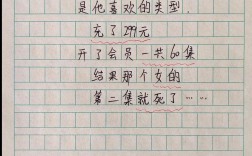 是他喜欢的类型,
充了299元
开了会员一共60集
结果那个女的
第二集就死了……